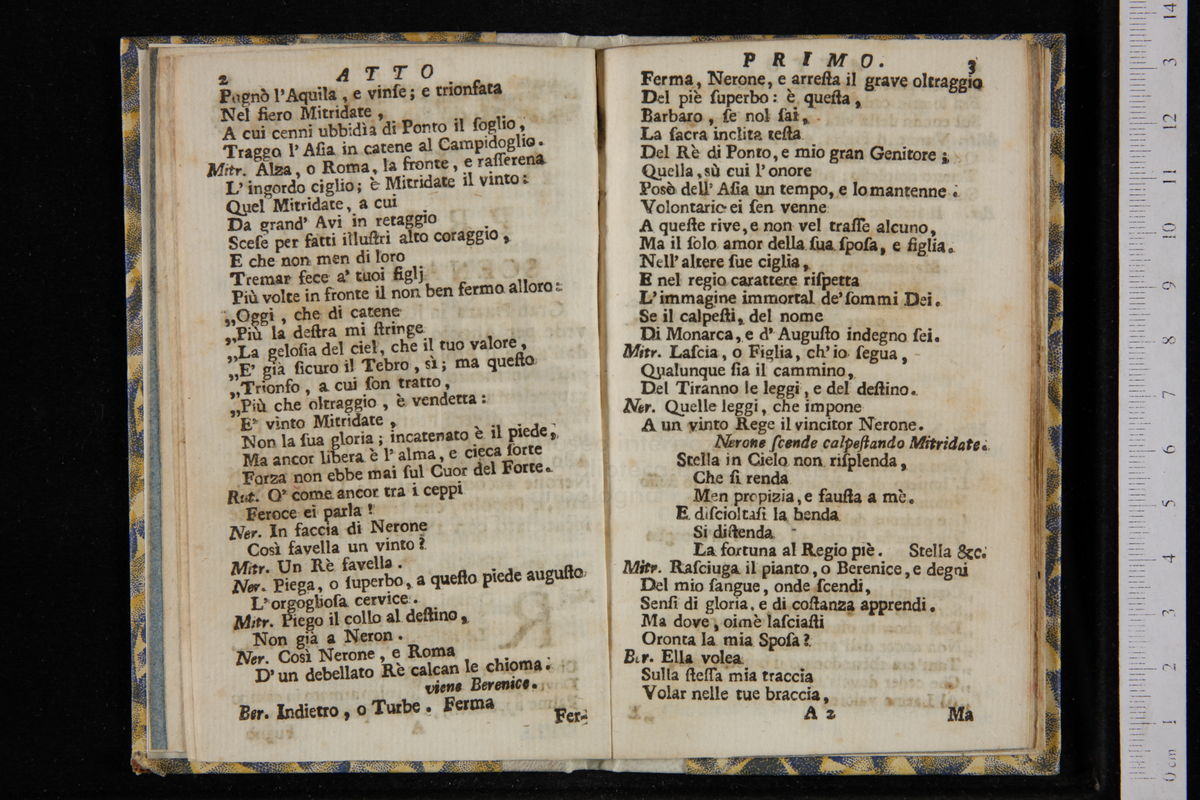 2 ATTO
Pugnò l'Aquila, e vinſe; e trionfata
Nel fiero Mitridate,
A cui cenni ubbidìa di Ponto il ſoglio,
Traggo l'Aſia in catene al Campidoglio.
Mitr. Alza, o Roma, la fronte, e raſſerena
L'ingordo ciglio; è Mitridate il vinto:
Quel Mitridate, a cui
Da grand' Avi in retaggio
Sceſe per fatti illuſtri alto coraggio,
E che non men di loro
Tremar fece a' tuoi figlj
Più volte in fronte il non ben fermo alloro:
„Oggi, che di catene
„Più la deſtra mi ſtringe
„La geloſia del ciel, che il tuo valore,
„E' già ſicuro il Tebro, sì; ma queſto
„Trionfo, a cui ſon tratto,
„Più che oltraggio, è vendetta:
E' vinto Mitridate,
Non la ſua gloria; incatenato è il piede;
Ma ancor libera è l'alma, e cieca ſorte
Forza non ebbe mai ſul Cuor del Forte.
Rut. O' come ancor tra i ceppi
Feroce ei parla!
Ner. In faccia di Nerone
Così favella un vinto?
Mitr. Un Rè favella.
Ner. Piega, o ſuperbo, a queſto piede auguſto
L'orgoglioſa cervice.
Mitr. Piego il collo al deſtino,
Non già a Neron.
Ner. Così Nerone, e Roma
D'un debellato Rè calcan le chioma.
viene Berenice.
Ber. Indietro, o Turbe. Ferma
Fer-
PRIMO. 3
Ferma, Nerone, e arreſta il grave oltraggio
Del piè ſuperbo: è queſta,
Barbaro, ſe nol ſai,
La ſacra inclita teſta
Del Rè di Ponto, e mio gran Genitore;
Quella, sù cui l'onore
Posò dell' Aſia un tempo, e lo mantenne.
Volontario ei ſen venne
A queſte rive, e non vel traſſe alcuno,
Ma il ſolo amor della ſua ſpoſa, e figlia.
Nell' altere ſue ciglia,
E nel regio carattere riſpetta
L'immagine immortal de' ſommi Dei.
Se il calpeſti, del nome
Di Monarca, e d' Auguſto indegno ſei.
Mitr. Laſcia, o Figlia, ch'io ſegua,
Qualunque ſia il cammino,
Del Tiranno le leggi, e del deſtino.
Ner. Quelle leggi, che impone
A un vinto Rege il vincitor Nerone.
Nerone ſcende calpeſtando Mitridate.
Stella in Cielo non riſplenda,
Che ſi renda
Men propizia, e fauſta a mè.
E diſcioltaſi la benda
Si diſtenda
La fortuna al Regio piè. Stella &c.
Mitr. Raſciuga il pianto, o Berenice, e degni
Del mio ſangue, onde ſcendi,
Senſi di gloria, e di coſtanza apprendi.
Ma dove, oimè laſciaſti
Oronta la mia Spoſa?
Ber. Ella volea
Sulla ſteſſa mia traccia
Volar nelle tue braccia,
A 2 Ma
0 cm 1 2 3 4 5 6 7 8 9 10 11 12 3 14